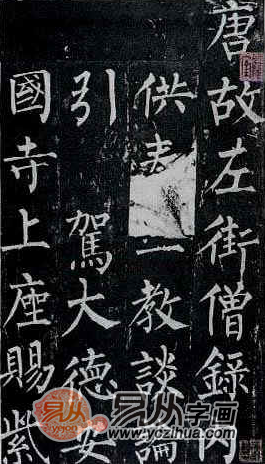 唐故左街僧錄內
供 教談論
引駕大德安
國寺上座賜紫
易从
易从字画
www.yczihua.com